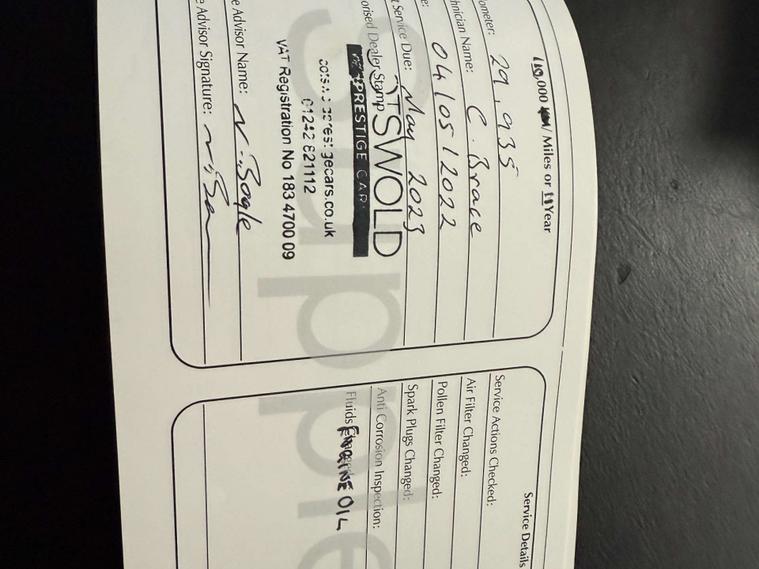 110,000 Miles or 11 Year
ometer: 29,935
hnician Name: C. Brace
e: 04/05/2022
t Service Due: May 2023
orised Dealer Stamp
OTSWOLD
PRESTIGE CAR
gecars.co.uk
01242 821112
VAT Registration No 183 4700 09
e Advisor Name: N. Bogle
e Advisor Signature:
Service Details
Service Actions Checked:
Air Filter Changed:
Pollen Filter Changed:
Spark Plugs Changed:
Anti Corrosion Inspection:
Fluids ENGINE OIL